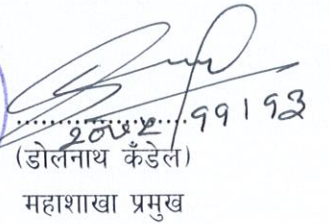 ११।१३
(डोलनाथ कँडेल)
महाशाखा प्रमुख